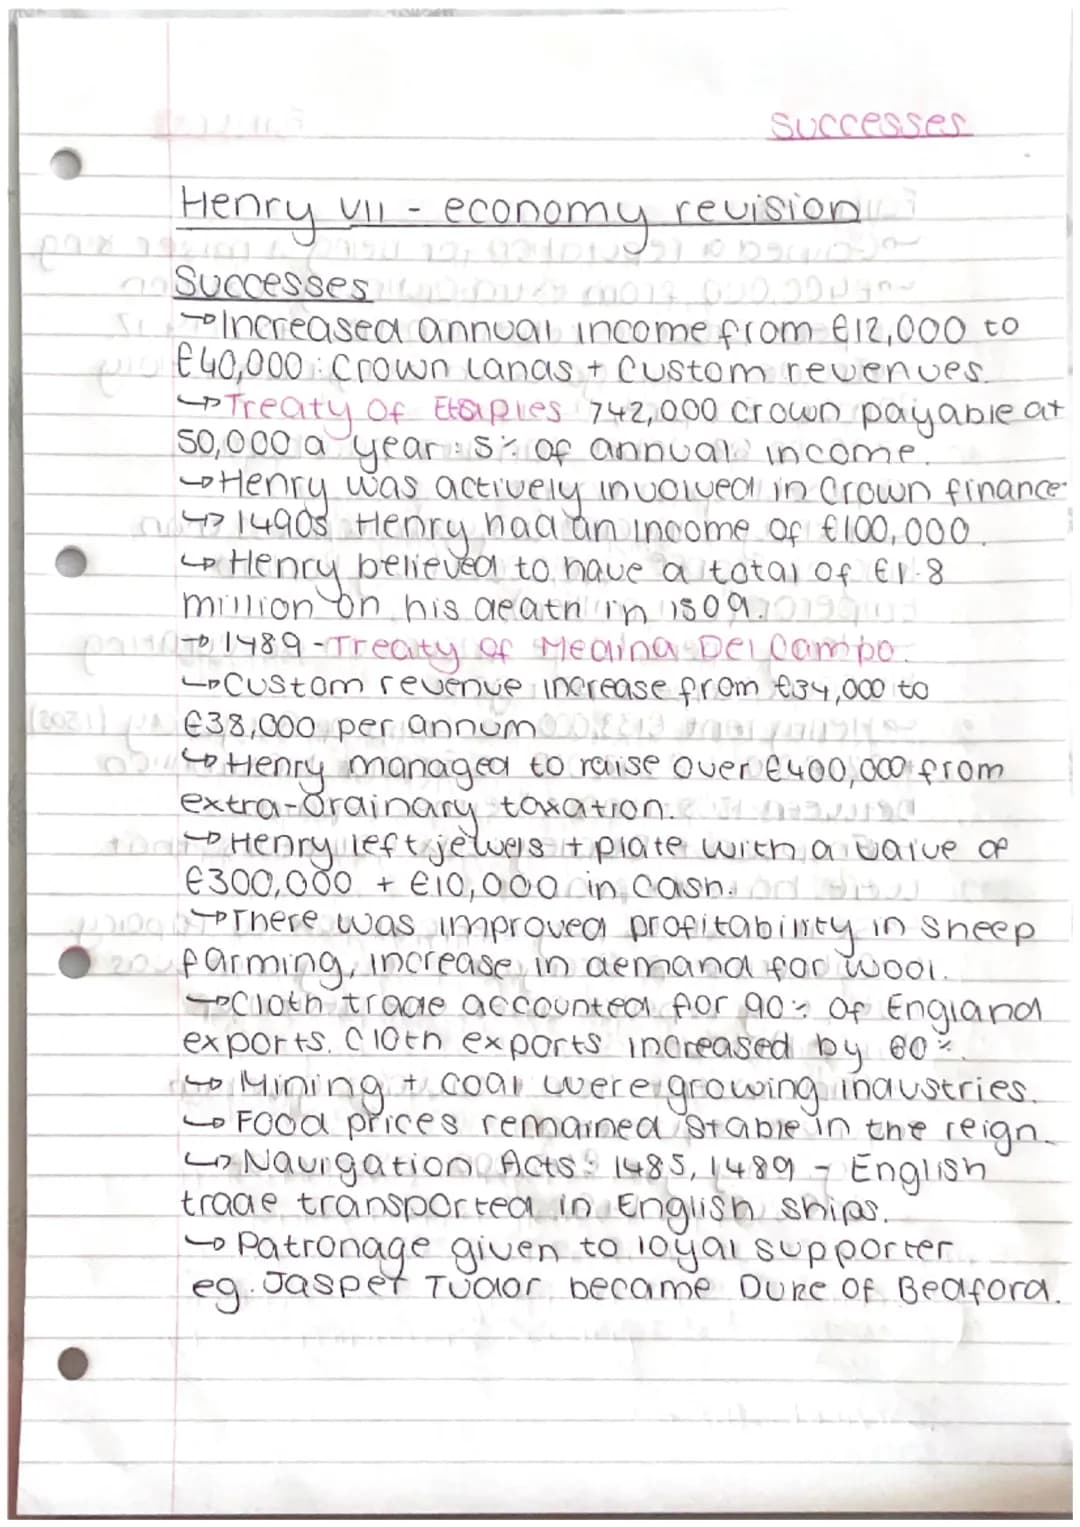 Successes
Henry VII - economy revision
Successes
→Increased annual income from £12,000 to
£40,000 : Crown lands + Custom revenues.
↳Treaty of Etaples 742,000 crown payable at
50,000 a year : 5% of annual income.
↳Henry was actively involved in Crown finance
↳ 1490s Henry had an income of £100,000.
↳Henry believed to have a total of £1.8
million on his death in 1509.
→ 1489 - Treaty of Medina Del Campo.
↳Custom revenue increase from £34,000 to
£38,000 per annum
↳Henry managed to raise over £400,000 from
extra-ordainary taxation.
↳Henry left jewels + plate with a value of
£300,000 + £10,000 in cash.
↳There was improved profitability in sheep
farming, increase in demand for wool.
↳Cloth trade accounted for 90% of England
exports. Cloth exports increased by 60%.
↳ Mining + coal were growing industries.
↳ Food prices remained stable in the reign.
↳ Navigation Acts : 1485, 1489 - English
trade transported in English ships.
↳ Patronage given to loyal supporter
eg. Jasper Tudor became Duke of Bedford.